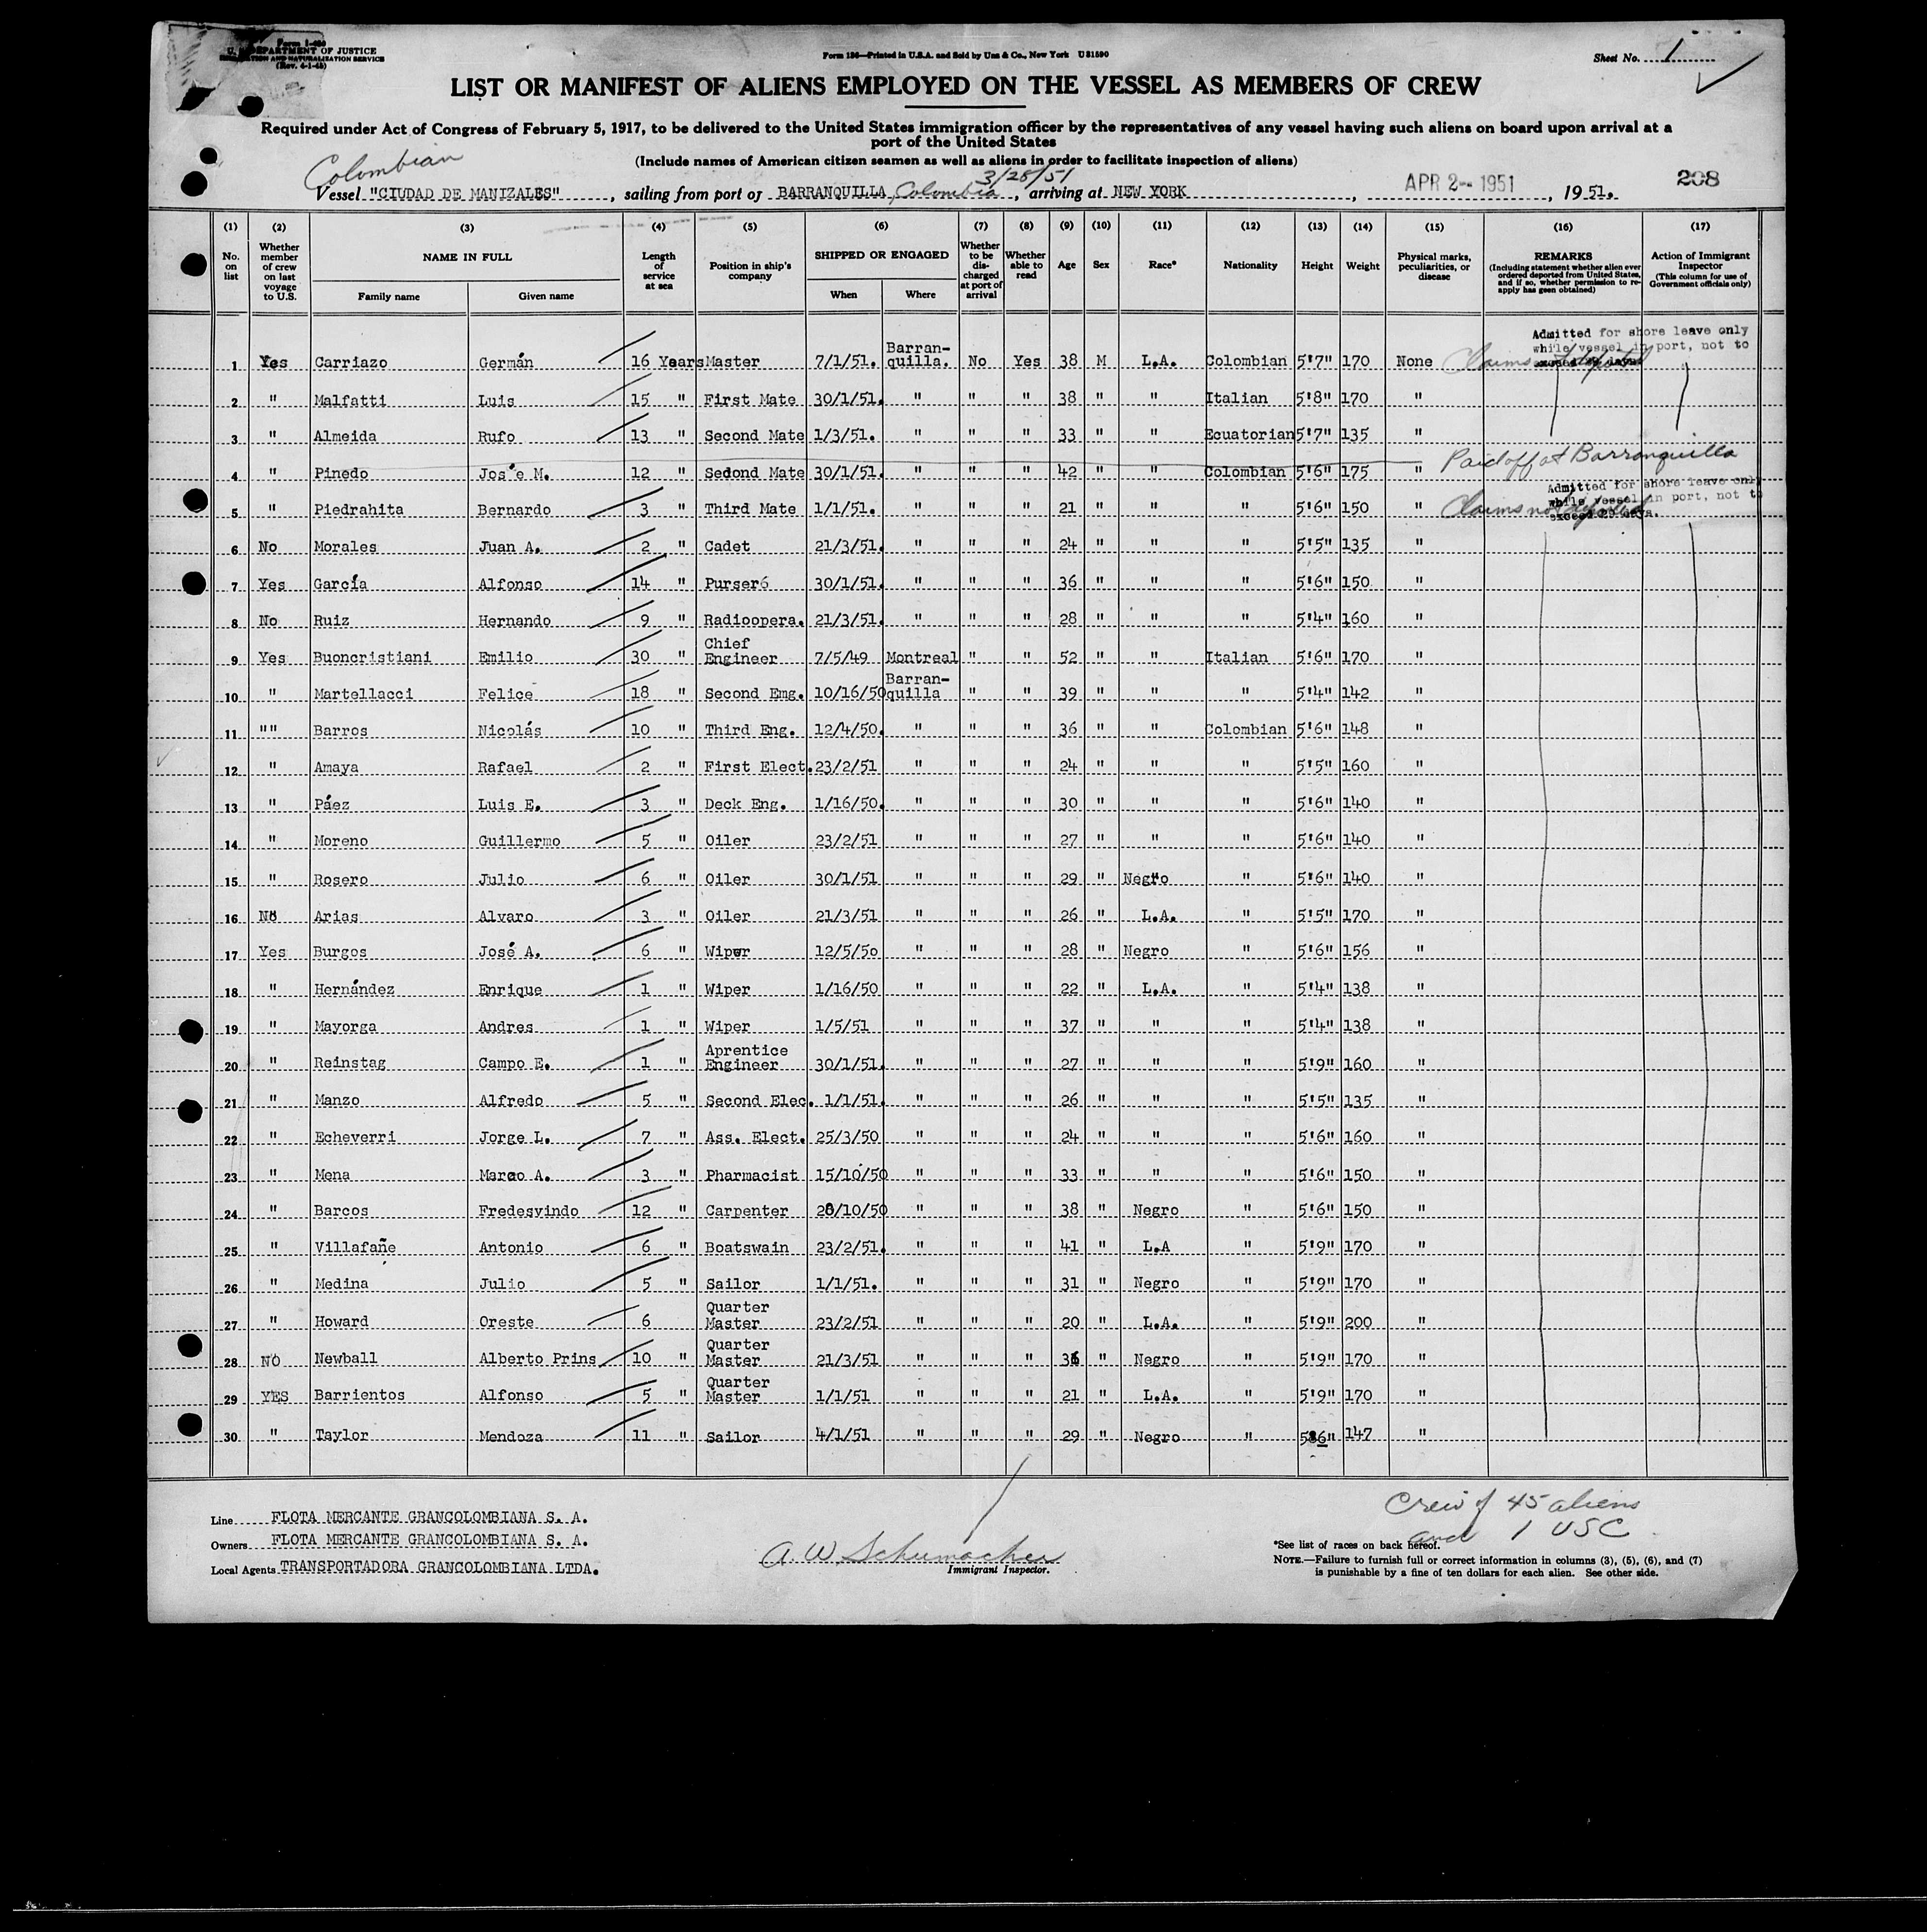 Form I-480
U. S. DEPARTMENT OF JUSTICE
IMMIGRATION AND NATURALIZATION SERVICE
(Rev. 4-1-45)
Form 136—Printed in U.S.A. and Sold by Unz & Co., New York U 31590
Sheet No. 1
LIST OR MANIFEST OF ALIENS EMPLOYED ON THE VESSEL AS MEMBERS OF CREW
Required under Act of Congress of February 5, 1917, to be delivered to the United States immigration officer by the representatives of any vessel having such aliens on board upon arrival at a
port of the United States
(Include names of American citizen seamen as well as aliens in order to facilitate inspection of aliens)
Colombian
3/28/51
Vessel "CIUDAD DE MANIZALES", sailing from port of BARRANQUILLA, Colombia, arriving at NEW YORK, APR 2-- 1951, 1951.
208
(1) (2) (3) (4) (5) (6) (7) (8) (9) (10) (11) (12) (13) (14) (15) (16) (17)
No. on list
Whether member of crew on last voyage to U.S.
NAME IN FULL
Family name
Given name
Length of service at sea
Position in ship's company
SHIPPED OR ENGAGED
When
Where
Whether to be discharged at port of arrival
Whether able to read
Age
Sex
Race*
Nationality
Height
Weight
Physical marks, peculiarities, or disease
REMARKS
(Including statement whether alien ever ordered deported from United States, and if so, whether permission to reapply has been obtained)
Action of Immigrant Inspector
(This column for use of Government officials only)
Admitted for shore leave only
while vessel in port, not to
exceed 29 days.
1 Yes Carriazo Germán 16 Years Master 7/1/51. Barran-quilla. No Yes 38 M L.A. Colombian 5'7" 170 None Claims not deported
2 " Malfatti Luis 15 " First Mate 30/1/51. " " " 38 " " Italian 5'8" 170 "
3 " Almeida Rufo 13 " Second Mate 1/3/51. " " " 33 " " Ecuatorian 5'7" 135 "
4 " Pinedo Jos'e M. 12 " Sedond Mate 30/1/51. " " " 42 " " Colombian 5'6" 175 " Paid off at Barranquilla
Admitted for shore leave only
while vessel in port, not to
exceed 29 days.
5 " Piedrahita Bernardo 3 " Third Mate 1/1/51. " " " 21 " " " 5'6" 150 " Claims not deported
6 No Morales Juan A. 2 " Cadet 21/3/51. " " " 24 " " " 5'5" 135 "
7 Yes García Alfonso 14 " Purser6 30/1/51. " " " 36 " " " 5'6" 150 "
8 No Ruiz Hernando 9 " Radioopera. 21/3/51. " " " 28 " " " 5'4" 160 "
9 Yes Buoncristiani Emilio 30 " Chief Engineer 7/5/49 Montreal " " 52 " " Italian 5'6" 170 "
10 " Martellacci Felice 18 " Second Emg. 10/16/50 Barran-quilla " " 39 " " " 5'4" 142 "
11 "" Barros Nicolás 10 " Third Eng. 12/4/50. " " " 36 " " Colombian 5'6" 148 "
12 " Amaya Rafael 2 " First Elect. 23/2/51 " " " 24 " " " 5'5" 160 "
13 " Páez Luis E. 3 " Deck Eng. 1/16/50. " " " 30 " " " 5'6" 140 "
14 " Moreno Guillermo 5 " Oiler 23/2/51 " " " 27 " " " 5'6" 140 "
15 " Rosero Julio 6 " Oiler 30/1/51 " " " 29 " Negro " 5'6" 140 "
16 No Arias Alvaro 3 " Oiler 21/3/51 " " " 26 " L.A. " 5'5" 170 "
17 Yes Burgos José A. 6 " Wiper 12/5/5o " " " 28 " Negro " 5'6" 156 "
18 " Hernández Enrique 1 " Wiper 1/16/50 " " " 22 " L.A. " 5'4" 138 "
19 " Mayorga Andres 1 " Wiper 1/5/51 " " " 37 " " " 5'4" 138 "
20 " Reinstag Campo E. 1 " Aprentice Engineer 30/1/51. " " " 27 " " " 5'9" 160 "
21 " Manzo Alfredo 5 " Second Elec. 1/1/51. " " " 26 " " " 5'5" 135 "
22 " Echeverri Jorge L. 7 " Ass. Elect. 25/3/50 " " " 24 " " " 5'6" 160 "
23 " Mena Marco A. 3 " Pharmacist 15/10/50 " " " 33 " " " 5'6" 150 "
24 " Barcos Fredesvindo 12 " Carpenter 20/10/50 " " " 38 " Negro " 5'6" 150 "
25 " Villafañe Antonio 6 " Boatswain 23/2/51. " " " 41 " L.A " 5'9" 170 "
26 " Medina Julio 5 " Sailor 1/1/51. " " " 31 " Negro " 5'9" 170 "
27 " Howard Oreste 6 Quarter Master 23/2/51 " " " 20 " L.A. " 5'9" 200 "
28 NO Newball Alberto Prins 10 " Quarter Master 21/3/51 " " " 36 " Negro " 5'9" 170 "
29 YES Barrientos Alfonso 5 " Quarter Master 1/1/51 " " " 21 " L.A. " 5'9" 170 "
30 " Taylor Mendoza 11 " Sailor 4/1/51 " " " 29 " Negro " 5'6" 147 "
Crew of 45 aliens
and 1 USC
Line FLOTA MERCANTE GRANCOLOMBIANA S. A.
Owners FLOTA MERCANTE GRANCOLOMBIANA S. A.
Local Agents TRANSPORTADORA GRANCOLOMBIANA LTDA.
A. W. Schumacher
Immigrant Inspector.
*See list of races on back hereof.
NOTE.—Failure to furnish full or correct information in columns (3), (5), (6), and (7)
is punishable by a fine of ten dollars for each alien. See other side.